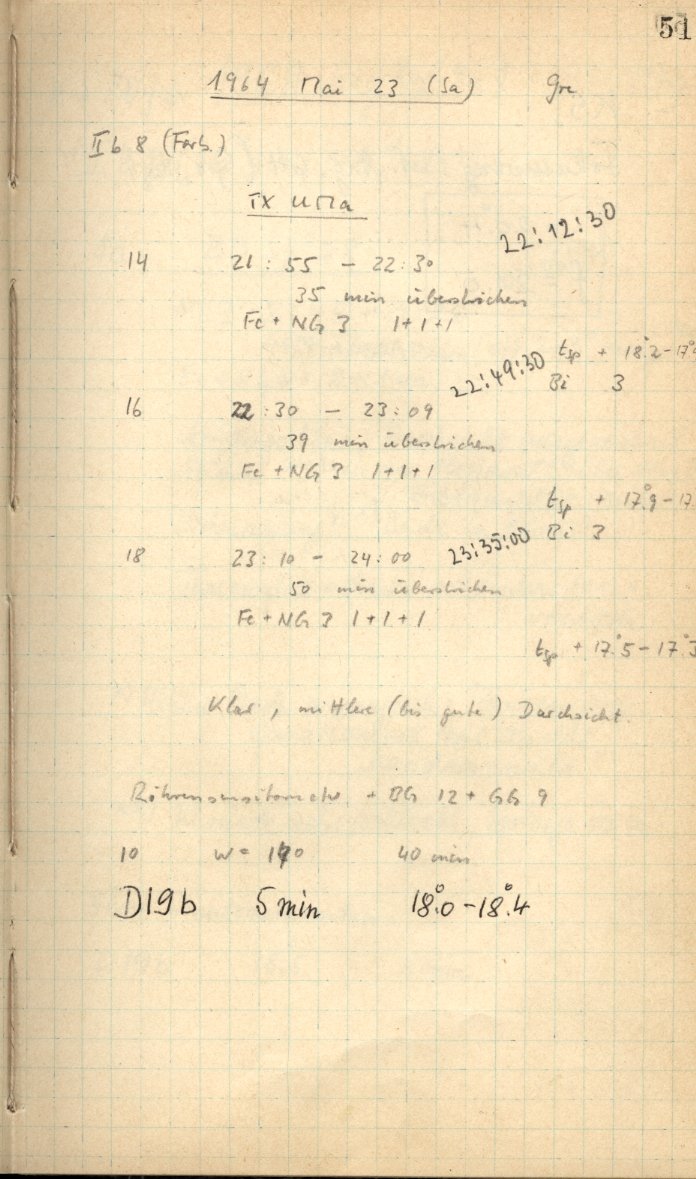 51
1964 Mai 23 (Sa) Gre
II b 8 (Farb.)
TX UMa
22:12:30
14 21:55 - 22:30
35 min überstrichen
Fc + NG 3 1+1+1
tsp + 18°.2 - 17°.
22:49:30 Bi 3
16 22:30 - 23:09
39 min überstrichen
Fc + NG 3 1+1+1
tsp + 17°.9 - 17.
23:35:00 Bi 3
18 23:10 - 24:00
50 min überstrichen
Fc + NG 3 1+1+1
tsp + 17°.5 - 17°.3
Klar, mittlere (bis gute) Durchsicht.
Röhrensensitometer + BG 12 + GG 9
10 w = 140 40 min
D19b 5 min 18°.0 - 18°.4